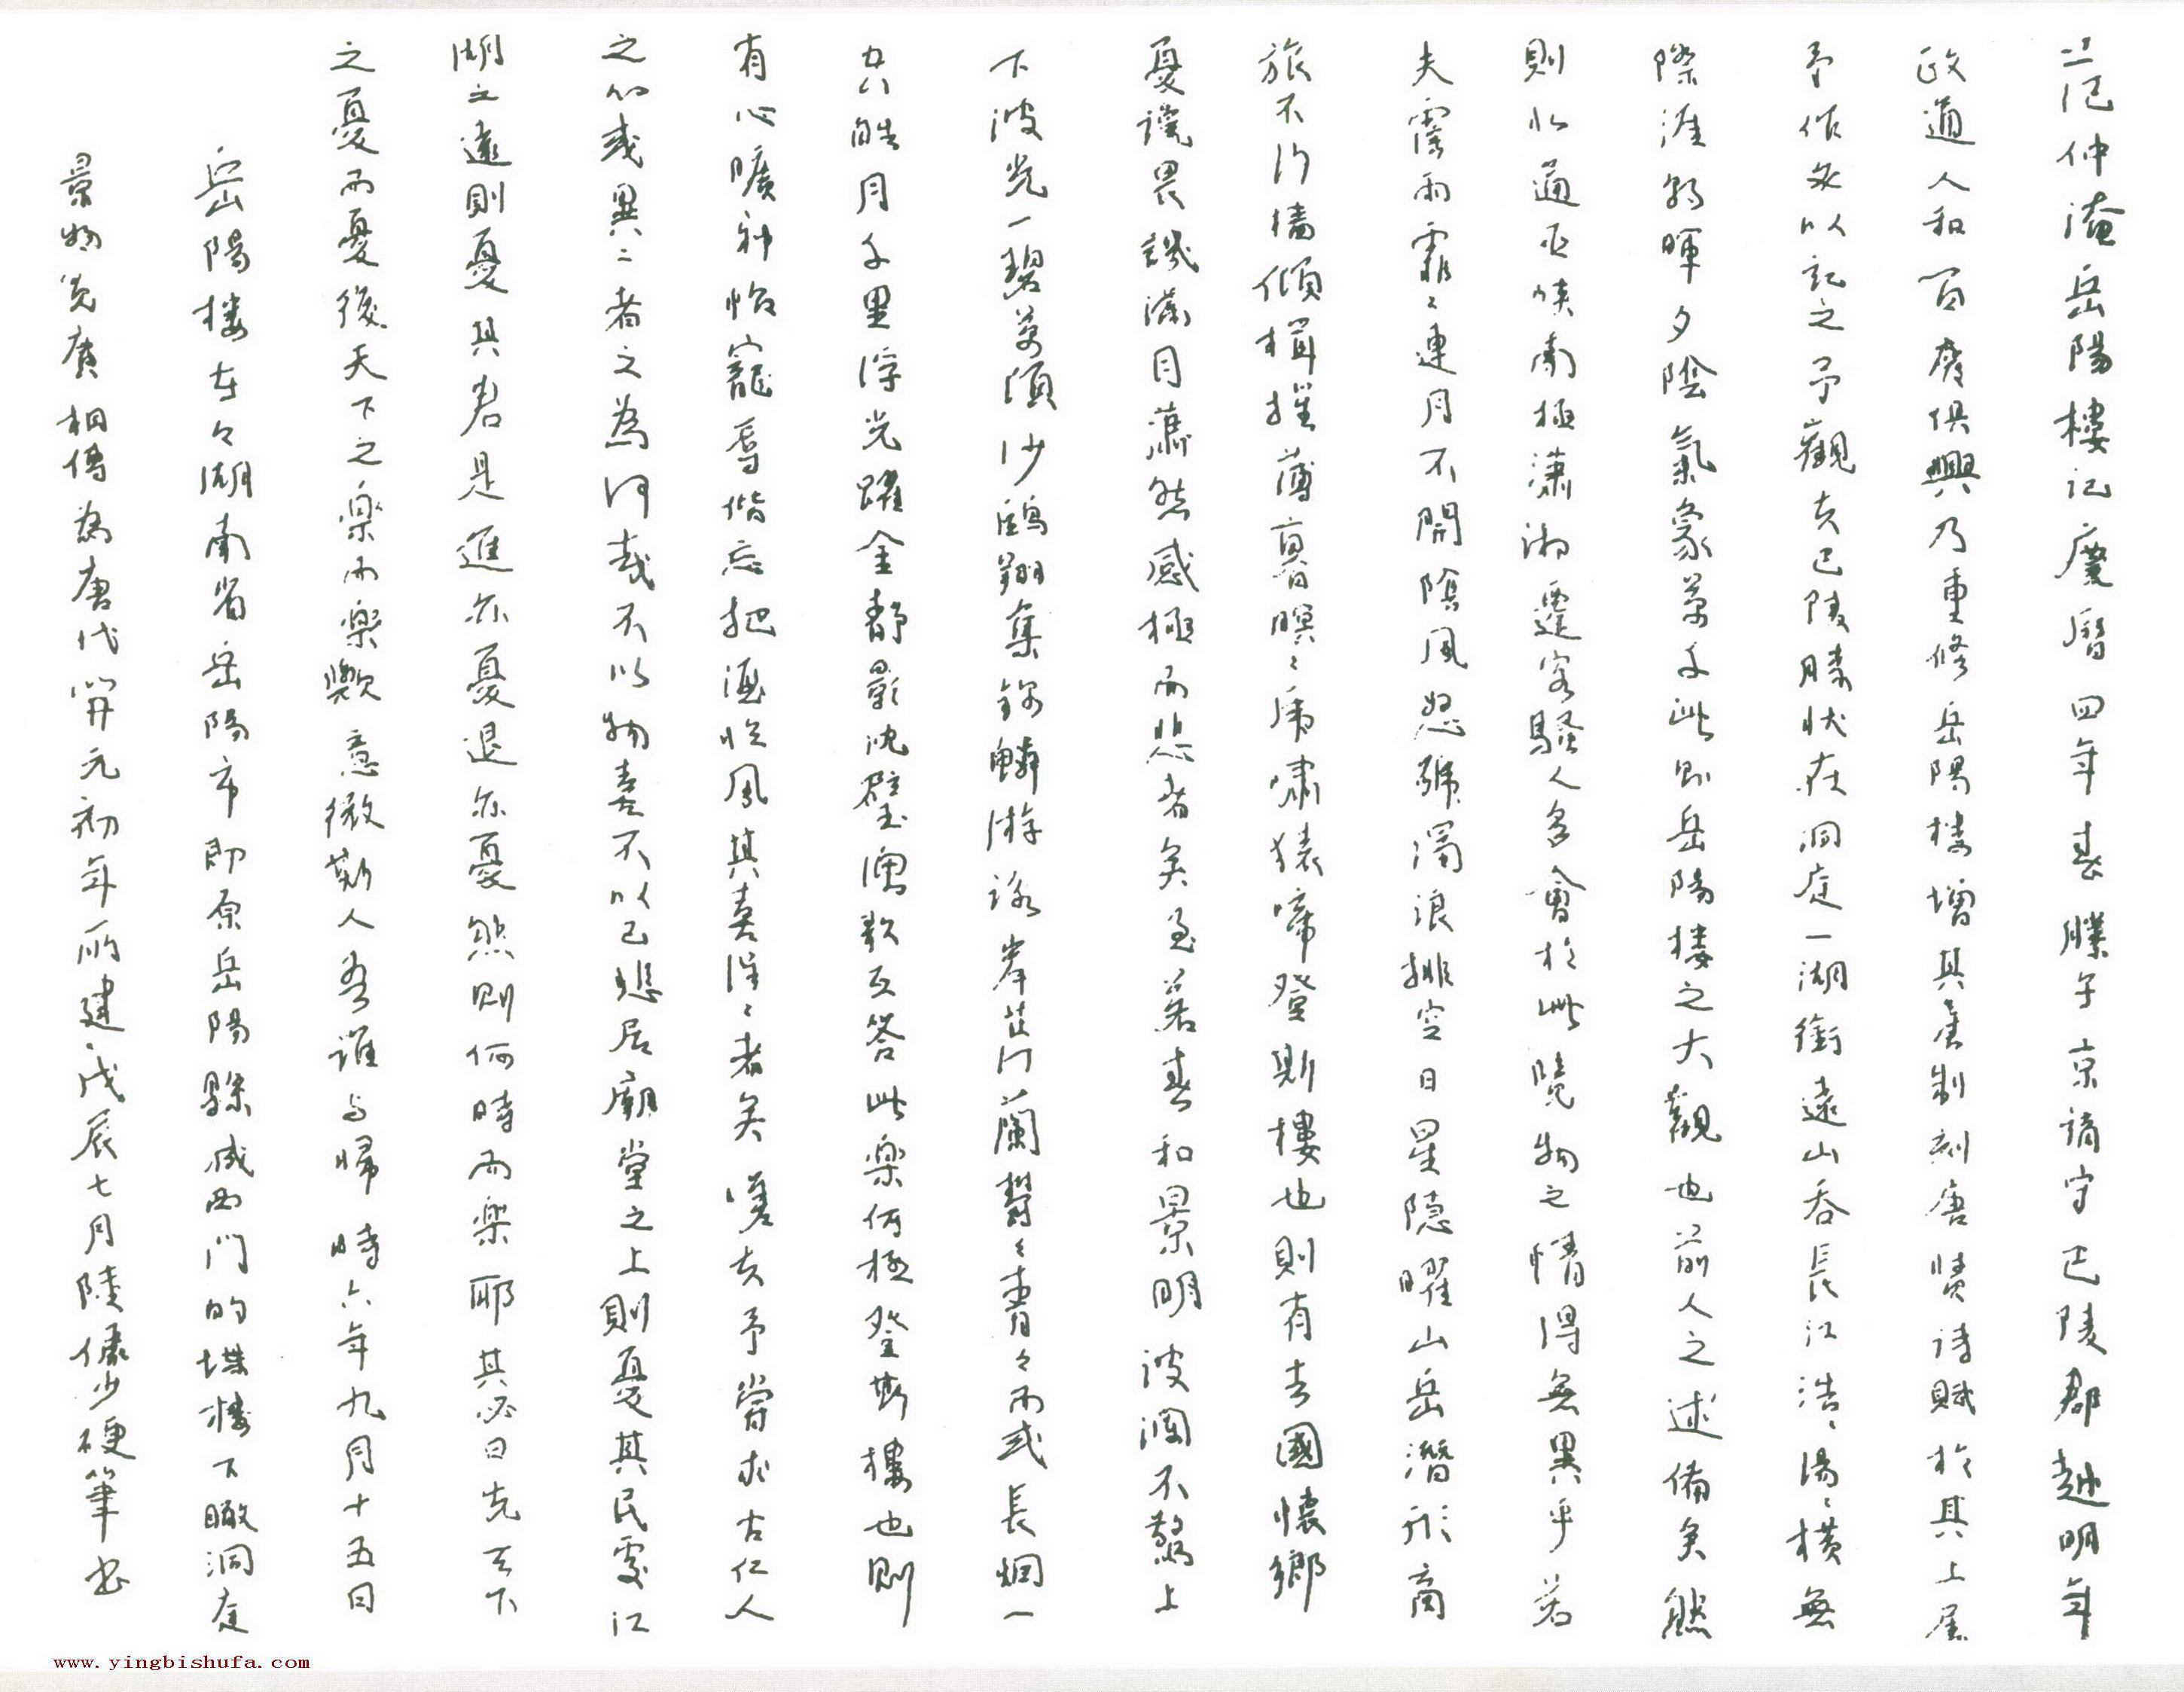 范仲淹岳陽樓記慶曆四年春滕子京謫守巴陵郡越明年
政通人和百廢俱興乃重修岳陽楼增其舊制刻唐賢詩賦於其上属
予作文以記之予觀夫巴陵勝狀在洞庭一湖銜遠山吞長江浩〻湯〻横無
際涯朝暉夕陰氣象萬千此則岳陽楼之大觀也前人之述備矣然
則北通巫峽南極瀟湘遷客騷人多會於此覽物之情得無異乎若
夫霪雨霏〻連月不開陰風怒號濁浪排空日星隐曜山岳潛形商
旅不行檣傾楫摧薄暮暝〻虎嘯猿啼登斯樓也則有去國懷鄉
憂讒畏譏滿目蕭然感極而悲者矣至若春和景明波瀾不驚上
下波光一碧萬頃沙鷗翔集錦鱗游泳岸芷汀蘭鬱〻青〻而或長烟一
空皓月千里浮光躍金静影沈璧漁歌互答此楽何極登斯樓也則
有心曠神怡寵辱偕忘把酒临風其喜洋〻者矣嗟夫予嘗求古仁人
之心或異二者之為何哉不以物喜不以己悲居廟堂之上則憂其民處江
湖之遠則憂其君是進亦憂退亦憂然則何時而楽耶其必曰先天下
之憂而憂後天下之楽而楽歟噫微斯人吾誰与歸時六年九月十五日
岳陽楼在今湖南省岳陽市即原岳陽縣城西门的城楼下瞰洞庭
景物宽廣相傳為唐代開元初年所建戊辰七月陸儼少硬筆书
www.yingbishufa.com